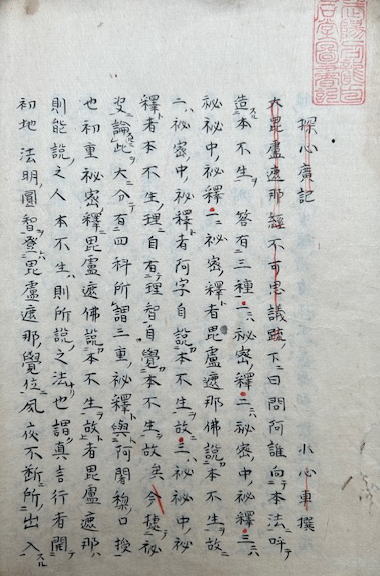 探心廣記 小心車撰
大毘盧遮那經不可思議疏下曰問阿誰向本法呼
造本不生 答有三種一祕密釋二祕密中祕釋三
祕祕中祕釋一祕密釋者毘盧遮那佛說本不生故
二祕密中祕釋者阿字自說本不生故三祕祕中祕
釋者本不生理自有理智自覺本不生故矣今 祕
論此大分有四科所謂三重祕釋與阿闍黎口授
也初重祕密釋毘盧遮佛說本不生故者毘盧遮那
則能說之人本不生則所說之法也謂真言行者開
初地法明圓智登毘盧遮那覺位夙夜不断所出入